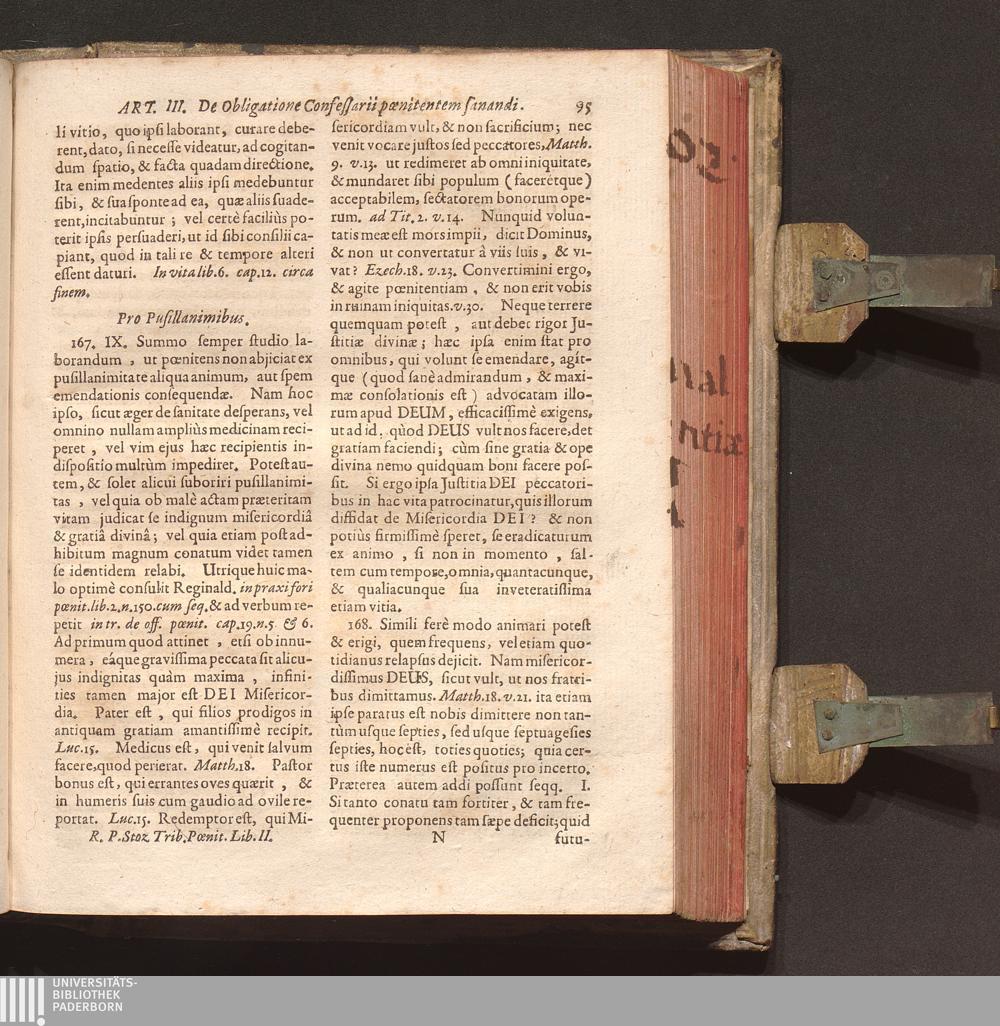 ART. III. De Obligatione Confeſſarii pœnitentem ſanandi. 95
li vitio, quo ipſi laborant, curare debe-
rent, dato, ſi neceſſe videatur, ad cogitan-
dum ſpatio, & facta quadam directione.
Ita enim medentes aliis ipſi medebuntur
ſibi, & ſua ſponte ad ea, quæ aliis ſuade-
rent, incitabuntur ; vel certè faciliùs po-
terit ipſis perſuaderi, ut id ſibi conſilii ca-
piant, quod in tali re & tempore alteri
eſſent daturi. In vita lib.6. cap.12. circa
finem.
Pro Puſillanimibus.
167. IX. Summo ſemper ſtudio la-
borandum , ut pœnitens non abjiciat ex
puſillanimitate aliqua animum, aut ſpem
emendationis conſequendæ. Nam hoc
ipſo, ſicut æger de ſanitate deſperans, vel
omnino nullam ampliùs medicinam reci-
peret , vel vim ejus hæc recipientis in-
diſpoſitio multùm impediret. Poteſt au-
tem, & ſolet alicui ſuboriri puſillanimi-
tas , vel quia ob malè actam præteritam
vitam judicat ſe indignum miſericordiâ
& gratiâ divinâ; vel quia etiam poſt ad-
hibitum magnum conatum videt tamen
ſe identidem relabi. Utrique huic ma-
lo optimè conſulit Reginald. in praxi fori
pœnit. lib.2.n.150. cum ſeq. & ad verbum re-
petit in tr. de off. pœnit. cap.19.n.5 & 6.
Ad primum quod attinet , etſi ob innu-
mera , eáque graviſſima peccata ſit alicu-
jus indignitas quàm maxima , infini-
ties tamen major eſt DEI Miſericor-
dia. Pater eſt , qui filios prodigos in
antiquam gratiam amantiſſimè recipit.
Luc.15. Medicus eſt, qui venit ſalvum
facere, quod perierat. Matth.18. Paſtor
bonus eſt, qui errantes oves quærit , &
in humeris ſuis cum gaudio ad ovile re-
portat. Luc.15. Redemptor eſt, qui Mi-
R. P. Stoz Trib. Pœnit. Lib. II.
ſericordiam vult, & non ſacrificium; nec
venit vocare juſtos ſed peccatores, Matth.
9. v.13. ut redimeret ab omni iniquitate,
& mundaret ſibi populum (faceretque)
acceptabilem, ſectatorem bonorum ope-
rum. ad Tit. 2. v. 14. Nunquid volun-
tatis meæ eſt mors impii, dicit Dominus,
& non ut convertatur à viis ſuis , & vi-
vat ? Ezech.18. v.23. Convertimini ergo,
& agite pœnitentiam , & non erit vobis
in ruinam iniquitas. v.30. Neque terrere
quemquam poteſt , aut debet rigor Ju-
ſtitiæ divinæ ; hæc ipſa enim ſtat pro
omnibus, qui volunt ſe emendare, agit-
que (quod ſanè admirandum , & maxi-
mæ conſolationis eſt ) advocatam illo-
rum apud DEUM, efficaciſſimè exigens,
ut ad id, quòd DEUS vult nos facere, det
gratiam faciendi; cùm ſine gratia & ope
divina nemo quidquam boni facere poſ-
ſit. Si ergo ipſa Juſtitia DEI peccatori-
bus in hac vita patrocinatur, quis illorum
diffidat de Miſericordia DEI ? & non
potiùs firmiſſimè ſperet, ſe eradicaturum
ex animo , ſi non in momento , ſal-
tem cum tempore, omnia, quantacunque,
& qualiacunque ſua inveteratiſſima
etiam vitia.
168. Simili ferè modo animari poteſt
& erigi, quem frequens, vel etiam quo-
tidianus relapſus dejicit. Nam miſericor-
diſſimus DEUS, ſicut vult, ut nos fratri-
bus dimittamus. Matth.18. v.21. ita etiam
ipſe paratus eſt nobis dimittere non tan-
tùm uſque ſepties, ſed uſque ſeptuageſies
ſepties, hoc eſt, toties quoties; quia cer-
tus iſte numerus eſt poſitus pro incerto.
Præterea autem addi poſſunt ſeqq. I.
Si tanto conatu tam fortiter, & tam fre-
quenter proponens tam ſæpe deficit; quid
N futu-
oz.
nal
ntiæ
UNIVERSITÄTS-
BIBLIOTHEK
PADERBORN